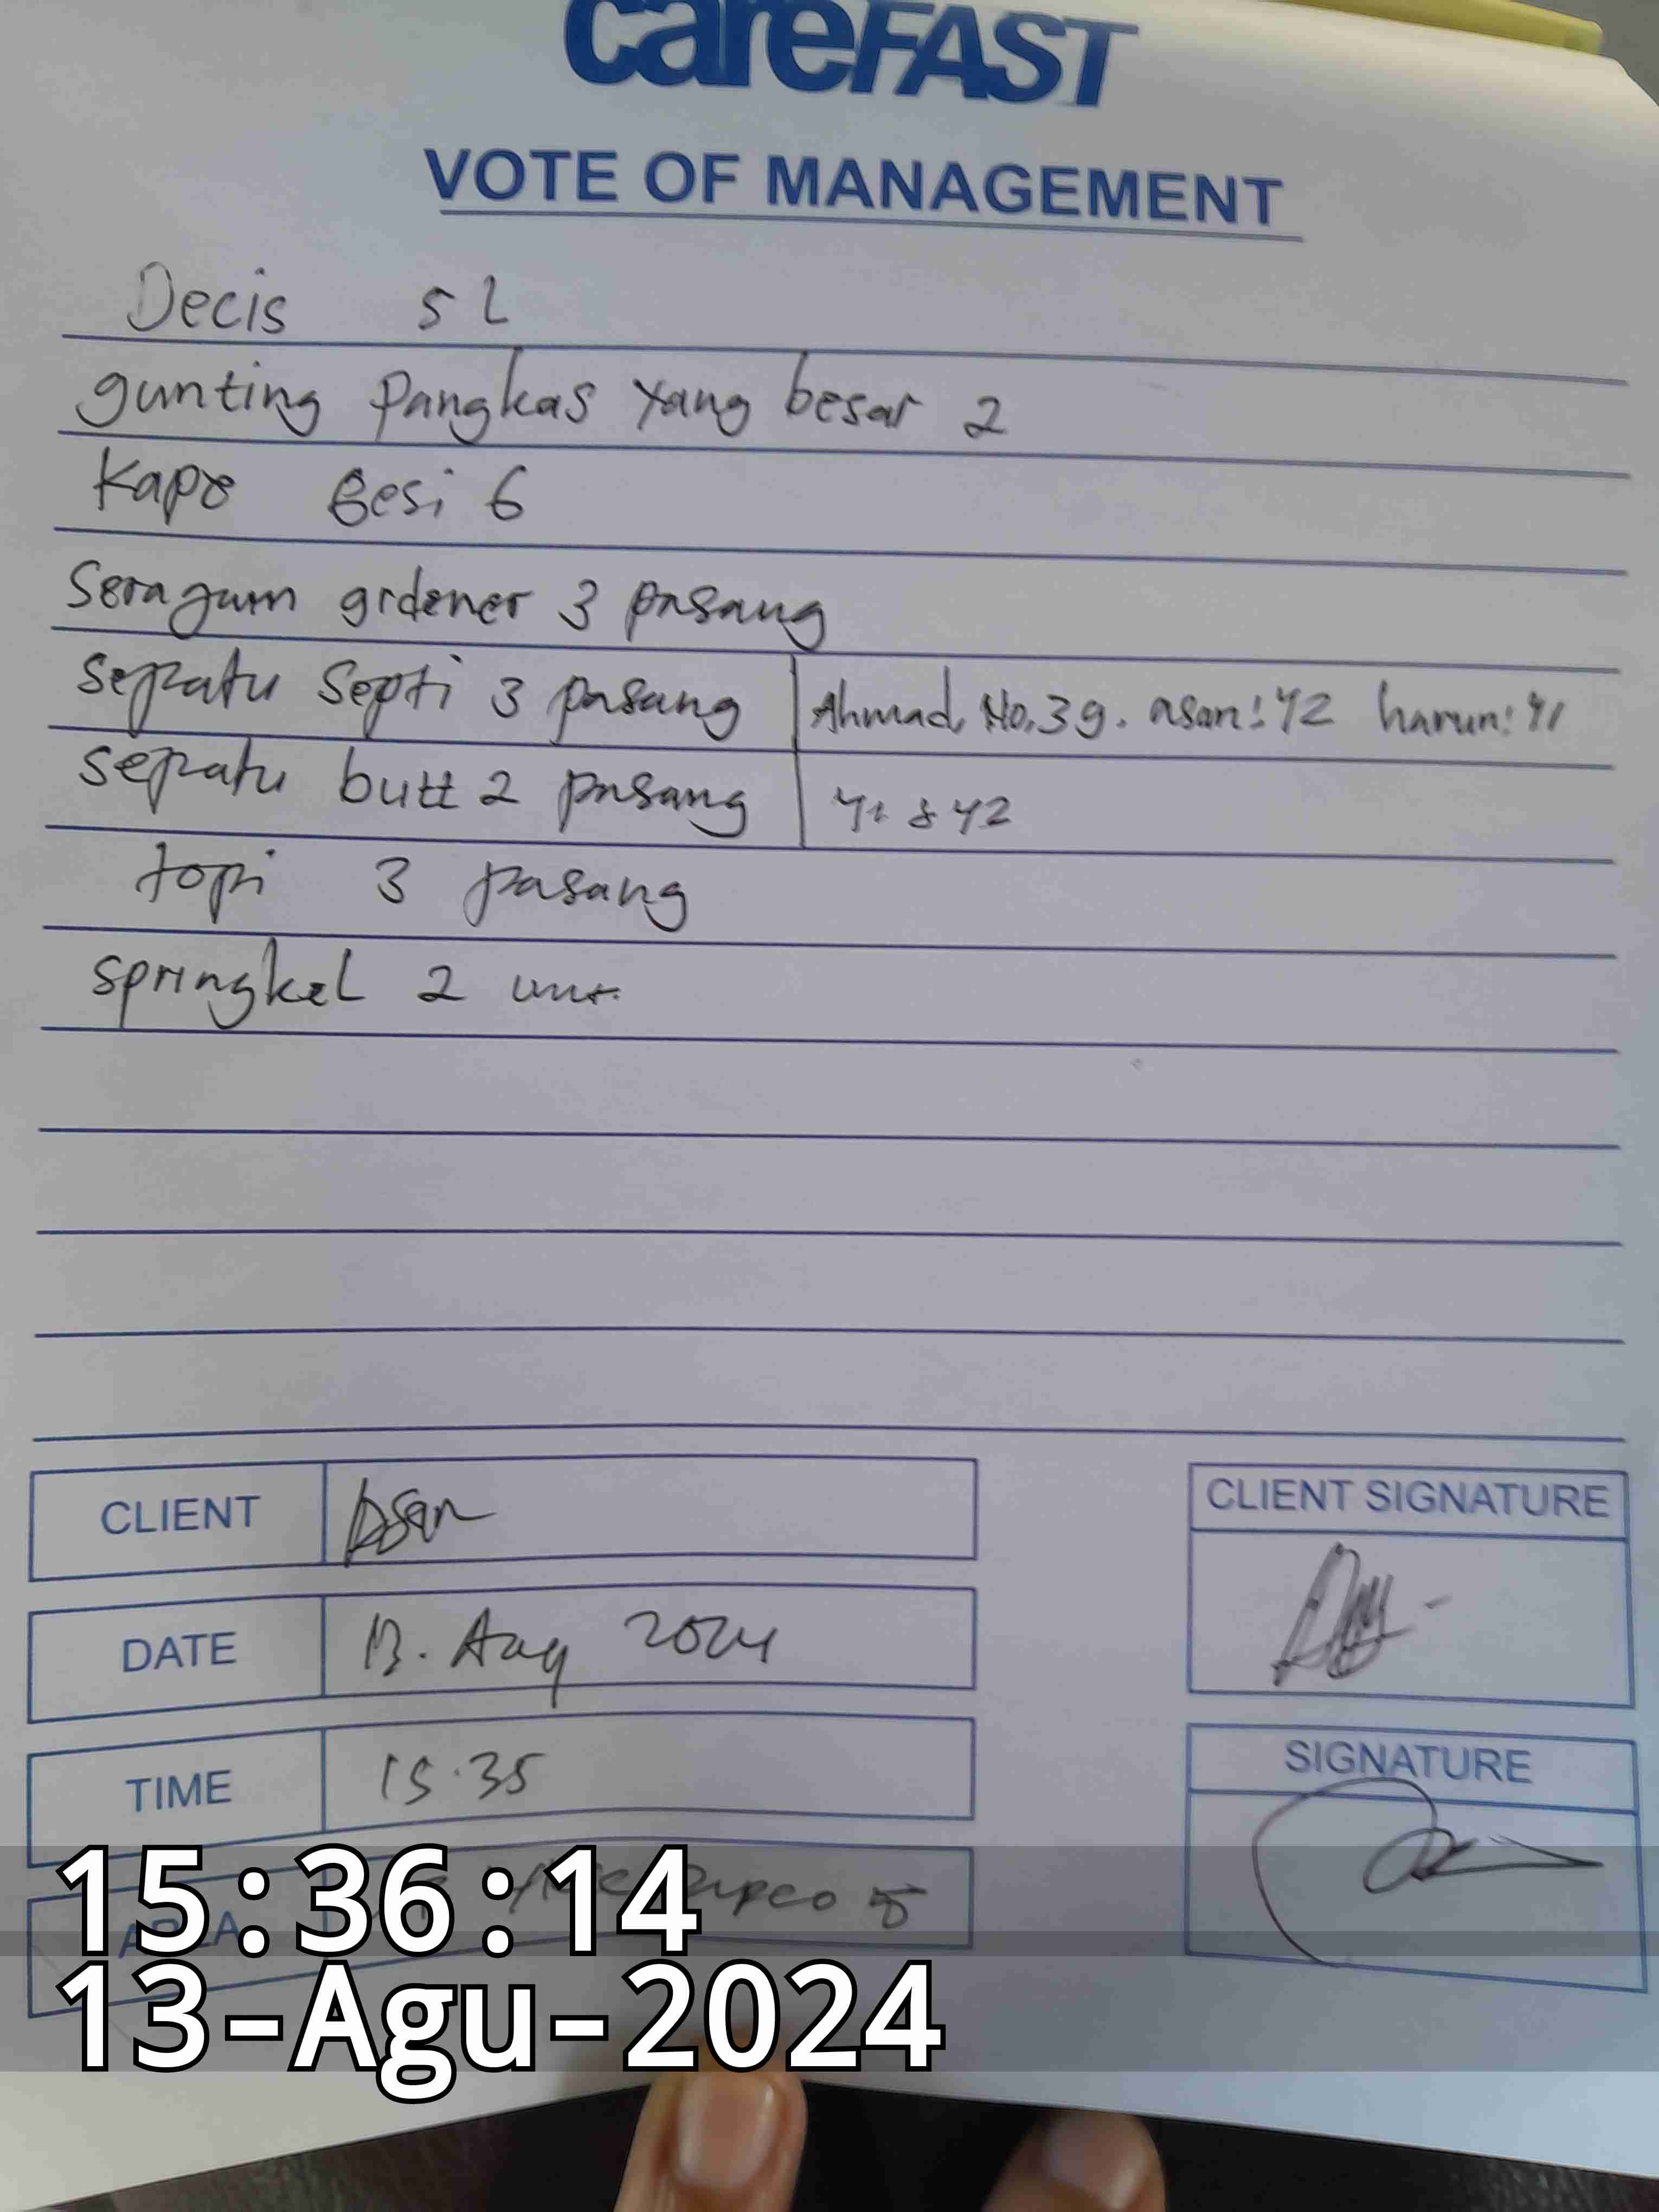 careFAST
VOTE OF MANAGEMENT
Decis 5 L
gunting Pangkas yang besar 2
Kape Besi 6
Seragam grdener 3 pasang
sepatu Septi 3 pasang Ahmad No.39. asan: 42 harun: 41
sepatu butt 2 pasang 41 & 42
topi 3 pasang
springkel 2 unit
CLIENT Asan
CLIENT SIGNATURE
DATE 13. Aug 2024
TIME 15.35
SIGNATURE
AREA
15:36:14
13-Agu-2024